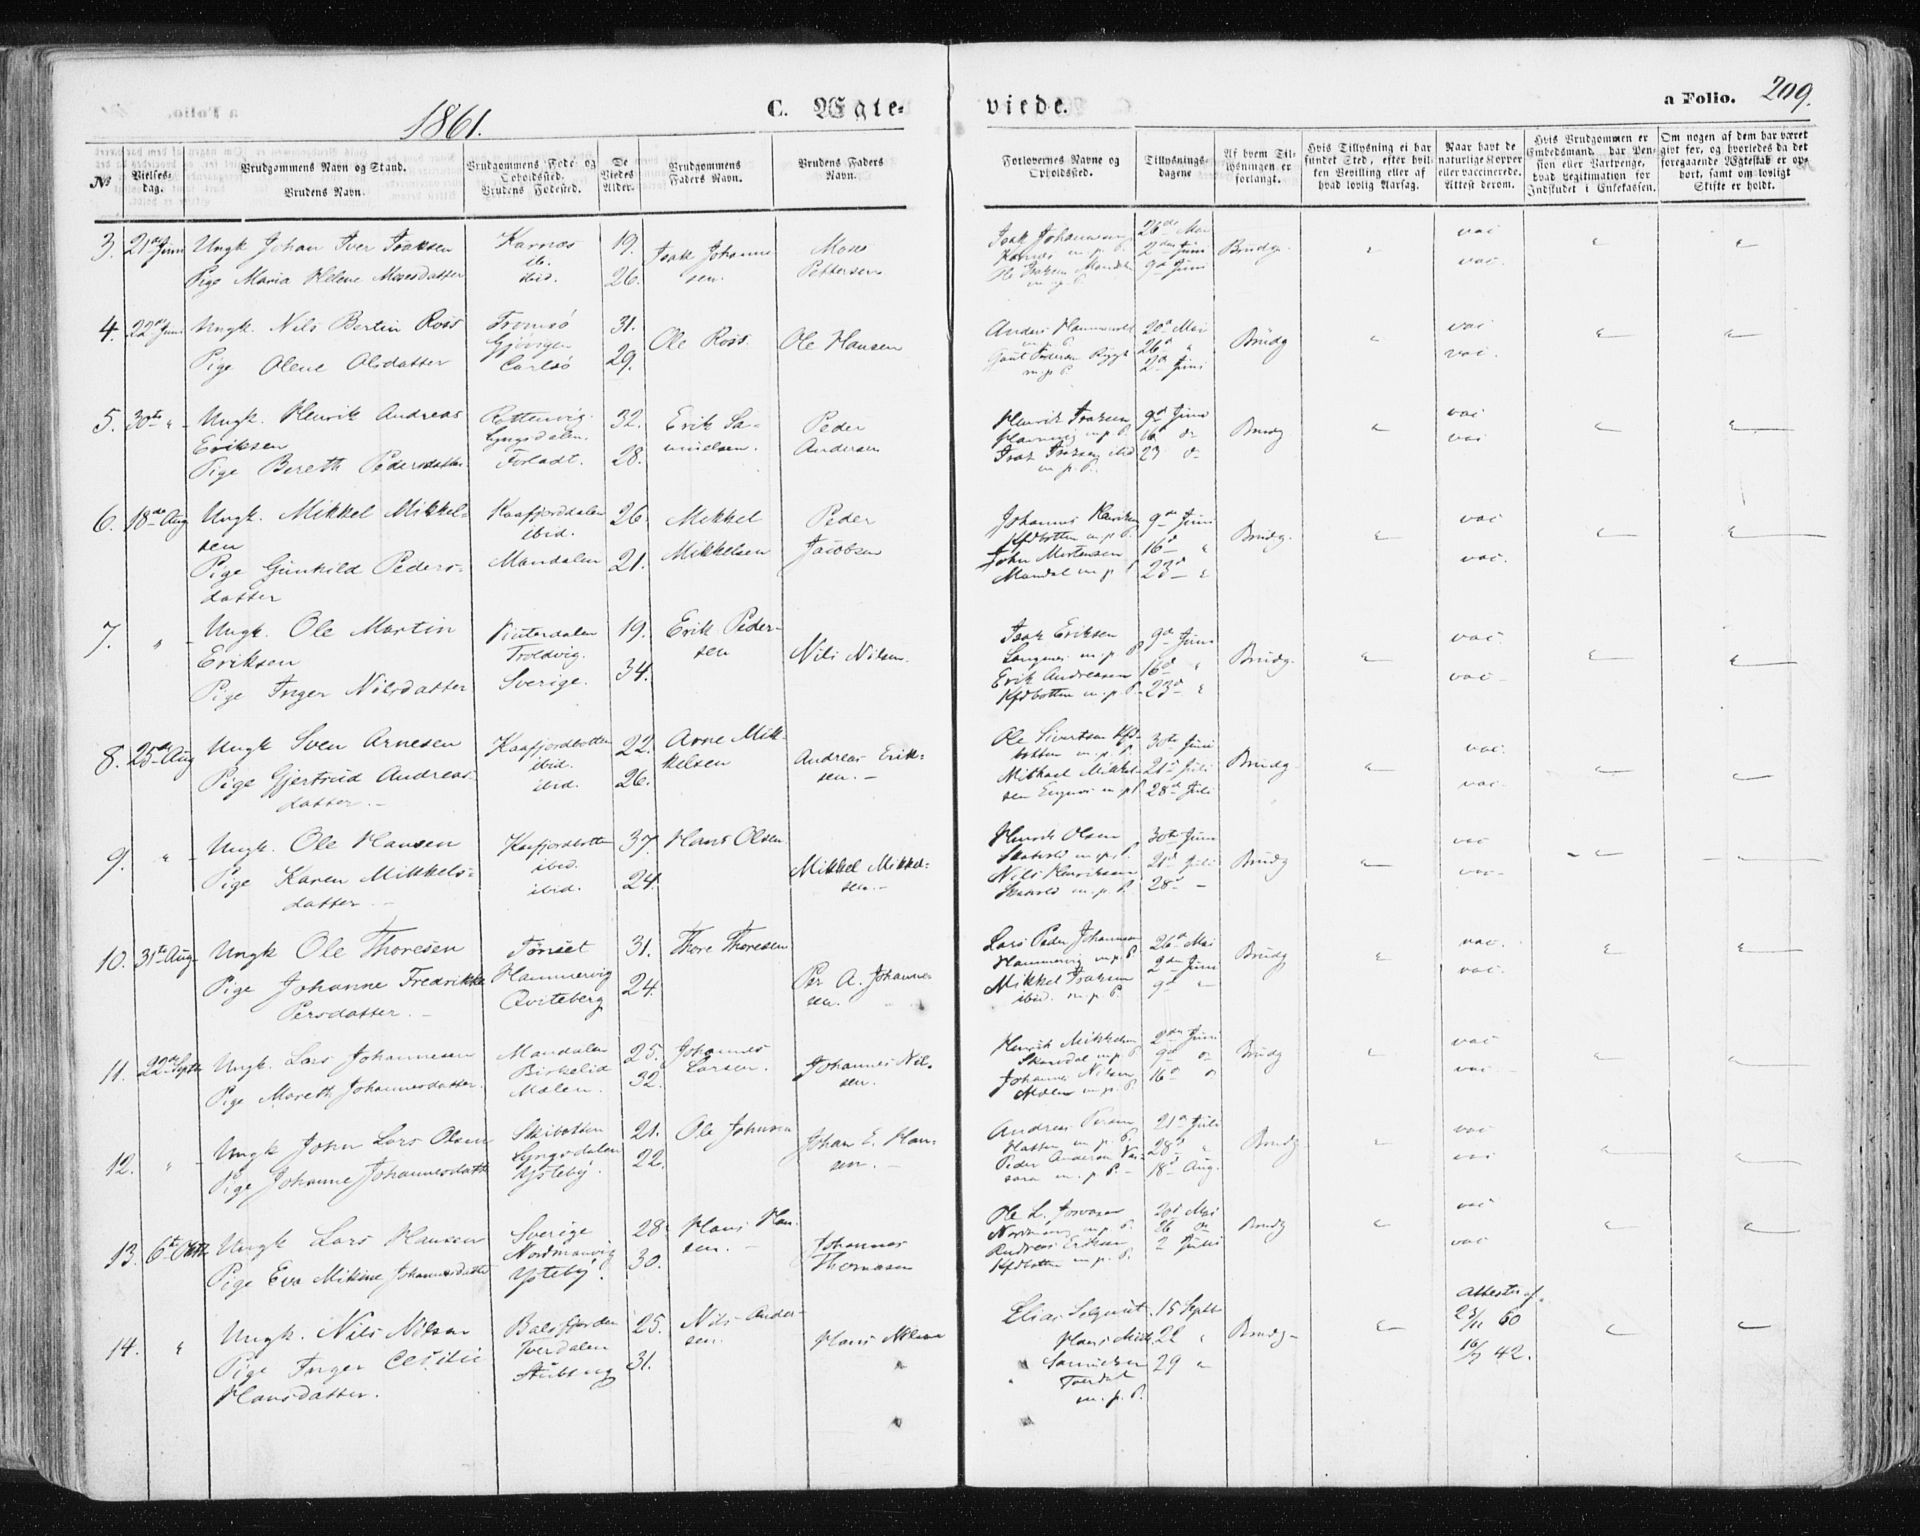 1861.
C. Ægte-
viede.
a Folio. 209.
№
Vielses-
dag.
Brudgommens Navn og Stand.
Brudens Navn.
Brudgommens Føde- og
Opholdssted.
Brudens Fødested.
De
Viedes
Alder.
Brudgommens
Faders Navn.
Brudens Faders
Navn.
Forlovernes Navne og
Opholdssted.
Tillysnings-
dagene
Af hvem Til-
lysningen er
forlangt.
Hvis Tillysning ei har
fundet Sted, efter hvil-
ken Bevilling eller af
hvad lovlig Aarsag.
Naar havt de
naturlige Kopper
eller vaccinerede.
Attest derom.
Hvis Brudgommen er
Embedsmand, har Pen-
sion eller Vartpenge,
hvad Legitimation for
Indskudet i Enkekassen.
Om nogen af dem har været
gift før, og hvorledes da det
foregaaende Ægteskab er op-
hørt, samt om lovligt
Skifte er holdt.
3. 21de Juni Ungk Johan Iver Isaksen
Pige Maria Helene Mosesdatter
Karnæs
ib.
ibid.
19.
26.
Isak Johanne-
sen.
Moses
Pettersen
Isak Johannesen
Karnæs m. p. P.
26de Mai
2den Juni
9de Juni
Brudg.
vac
vac.
4. 22de Juni Ungk. Nils Bertin Ross
Pige Olene Olsdatter
Tromsö
Gjövigen
Carlsö
31.
29.
Ole Ross.
Ole Hansen
m. p. P.
20de Mai
26de "
2de Juni
Brudg
vac
vac.
5. 30te " Ungk. Henrik Andreas
Eriksen
Pige Bereth Pedersdatter
Rottenvig.
Lyngsdalen.
32.
28.
Erik Sa-
muelsen.
Peder
Andersen
Henrik Isaksen
m. p. P.
Isak Isaksen ibid
m. p. P.
9de Juni
16de do
23 do
Brudg.
vac
vac
6. 18de Aug Ungk. Mikkel Mikkel-
sen
Pige Gunhild Peders-
datter
Kaafjorddalen
ibid.
Mandalen
26.
21.
Mikkel
Mikkelsen
Peder
Jacobsen
Johannes Henriksen
Kfdbotten m. p. P.
John Mortensen
Mandal m. p. P.
9de Juni
16de "
23de "
Brudg.
vac
vac.
7. " Ungk. Ole Martin
Eriksen
Pige Inger Nilsdatter
Vinterdalen
Troldvig.
Sverige.
19.
34.
Erik Peder-
sen
Nils Nilsen.
Isak Eriksen
Langenes m. p. P.
Erik Andreasen
Kfdbotten m. p. P.
9de Juni
16de "
23de "
Brudg.
vac
vac
8. 25de Aug Ungk Sven Arnesen
Pige Gjertrud Andreas-
datter.
Kaafjordbotten
ibid.
ibid.
22.
26.
Arne Mik-
kelsen
Andreas Erik-
sen.
Ole Sivertsen Kfd-
botten m. p. P.
Mikkael Mikkel-
sen Engnæs m. p. P.
30te Juni
21de Juli
28de Juli
Brudg
vac.
vac.
9. " Ungk. Ole Hansen
Pige Karen Mikkels-
datter.
Kaafjordbotten
ibid.
ibid
37.
24.
Hans Olsen.
Mikkel Mikkel-
sen.
Henrik Olsen
m. p. P.
Nils Henriksen
m. p. P.
30te Juni
21de Juli
28de
Brudg
vac
vac
10. 31te Aug. Ungk Ole Thoresen
Pige Johanne Fredrikke
Persdatter.
Tönset
Hammervig
Qviteberg
31.
24.
Thore Thoresen
Per A. Johannes-
sen.
Lars Peder Johannesen
Hammervig m. p. P.
Mikkel Isaksen
ibid. m. p. P.
26de Mai
2den Juni
9de "
Brudg
vac.
vac.
11. 22de Septbr Ungk. Lars Johannesen
Pige Mareth Johannesdatter.
Mandalen
Birkelid
Malen.
25.
32.
Johannes
Larsen.
Johannes Nil-
sen.
Henrik Mikkelsen
Skardal m. p. P.
Johannes Nilsen
m. p. P.
2den Juni
9de do
16de do
Brudg
vac
vac
12. " Ungk John Lars Olsen
Pige Johanne Johannesdatter
Skibotten
Lyngsdalen
Ysteby.
21.
22.
Ole Johnsen
Johan E. Han-
sen.
Andreas
m. p. P.
Peder Andersen
m. p. P.
21de Juli
28de "
18de Aug.
Brudg
vac
vac
13. 6te Octbr Ungk Lars Hansen
Pige Eva Mikine Johannesdatter
Sverige
Nordmanvig
Ysteby.
28.
30.
Hans Han-
sen.
Johannes
Thomasen
Ole L.
m. p. P.
Andreas Eriksen
Kfdbotten m. p. P.
20de Mai
26 do
2 Juli
Brudg
vac
vac
14. " Ungk. Nils Nilsen
Pige Inger Cecilie
Hansdatter.
Balsfjorden
Tverdalen
25.
31.
Nils Ander-
sen.
Hans Nilsen
Elias
Hans Mick
Samuelsen
Tverdal
m. p. P.
15 Septr
22 "
29 "
Brudg
Attester af
23/11 60
16/7 42.